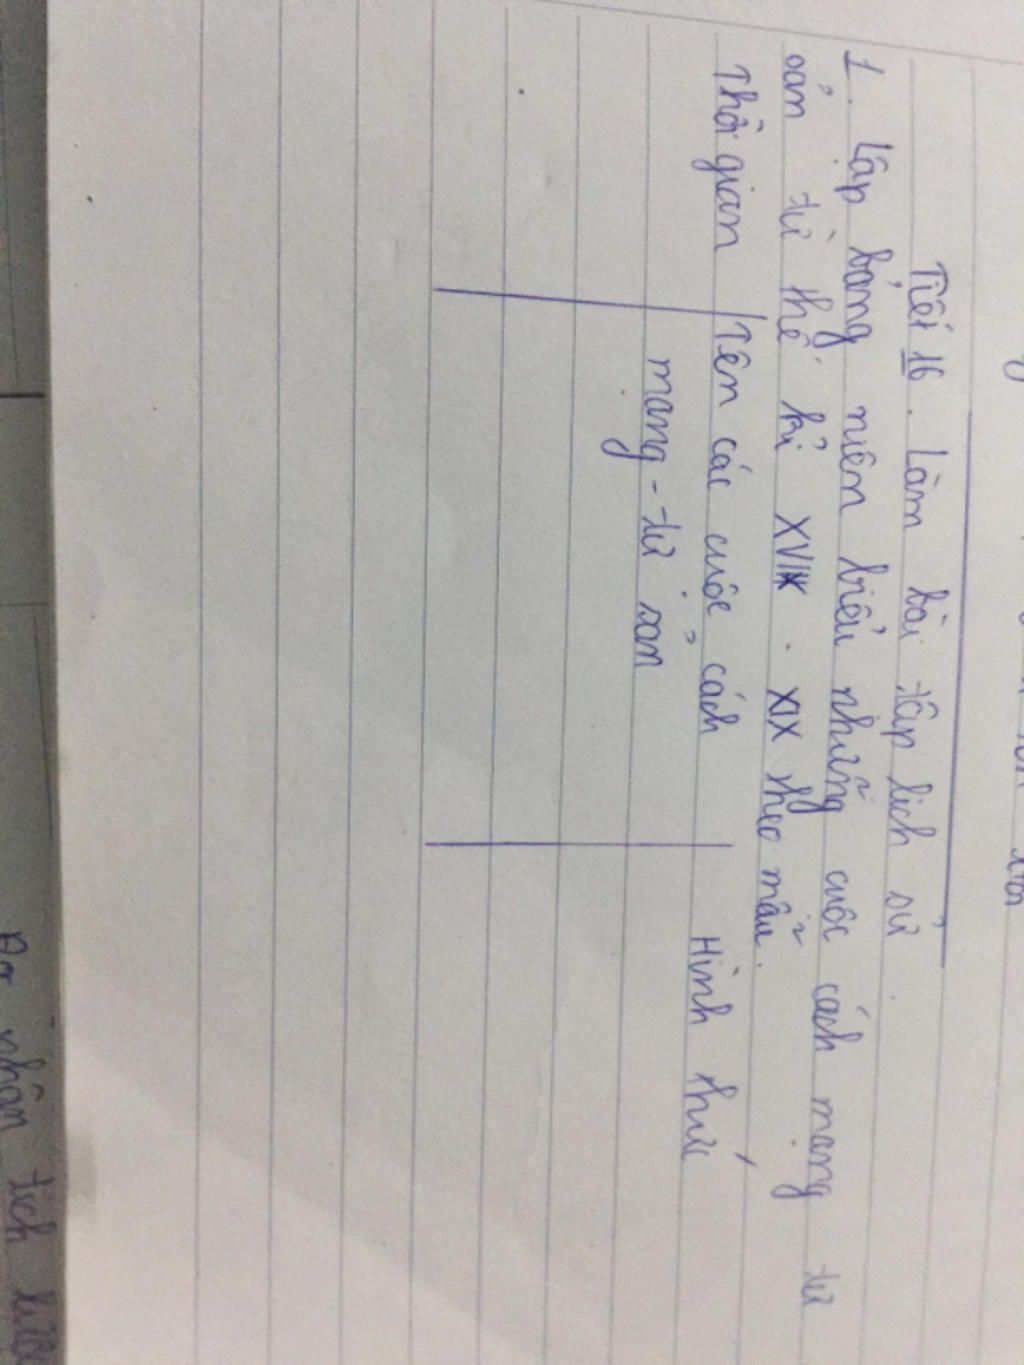 Tiết 16. Làm bài tập lịch sử.
1. Lập bảng niên biểu những cuộc cách mạng tư
sản từ thế kỉ XVIX. XIX theo mẫu.
Thời gian Tên các cuộc cách Hình thức
mạng - tư sản
nhân tích